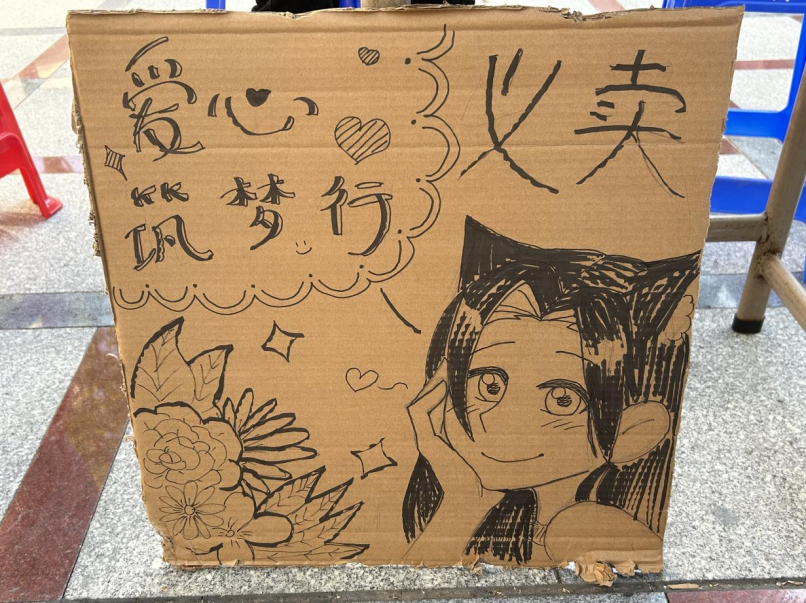 爱心
筑梦行
义卖